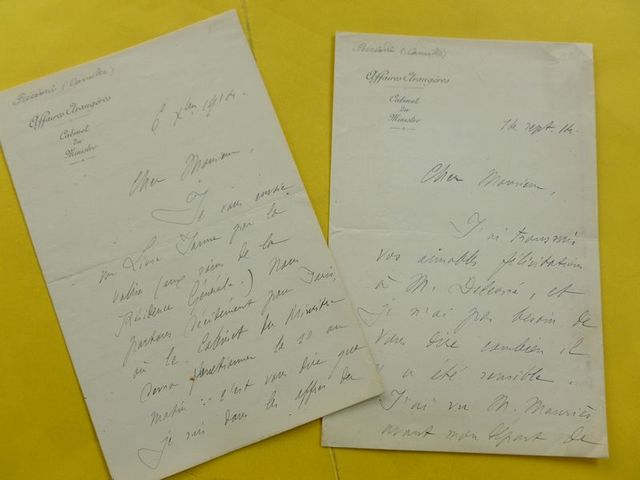 (Camille)
Affaires Etrangères
Cabinet
du
Ministre
6 Xbre 1914.
Cher Monsieur,
Je vous envoie
un Livre Jaune par la
valise (aux soins de la
Résidence Générale.) Nous
partons décidément pour Paris,
où le Cabinet du Ministre
devra fonctionner le 10 au
matin : c'est vous dire que
je suis dans les affres du
(Camille)
Affaires Etrangères
Cabinet
du
Ministre
14 sept. 14.
Cher Monsieur,
J'ai transmis
vos aimables félicitations
à M. Delcassé, et
je n'ai pas besoin de
vous dire combien il
y a été sensible.
J'ai vu M.
avant mon départ de